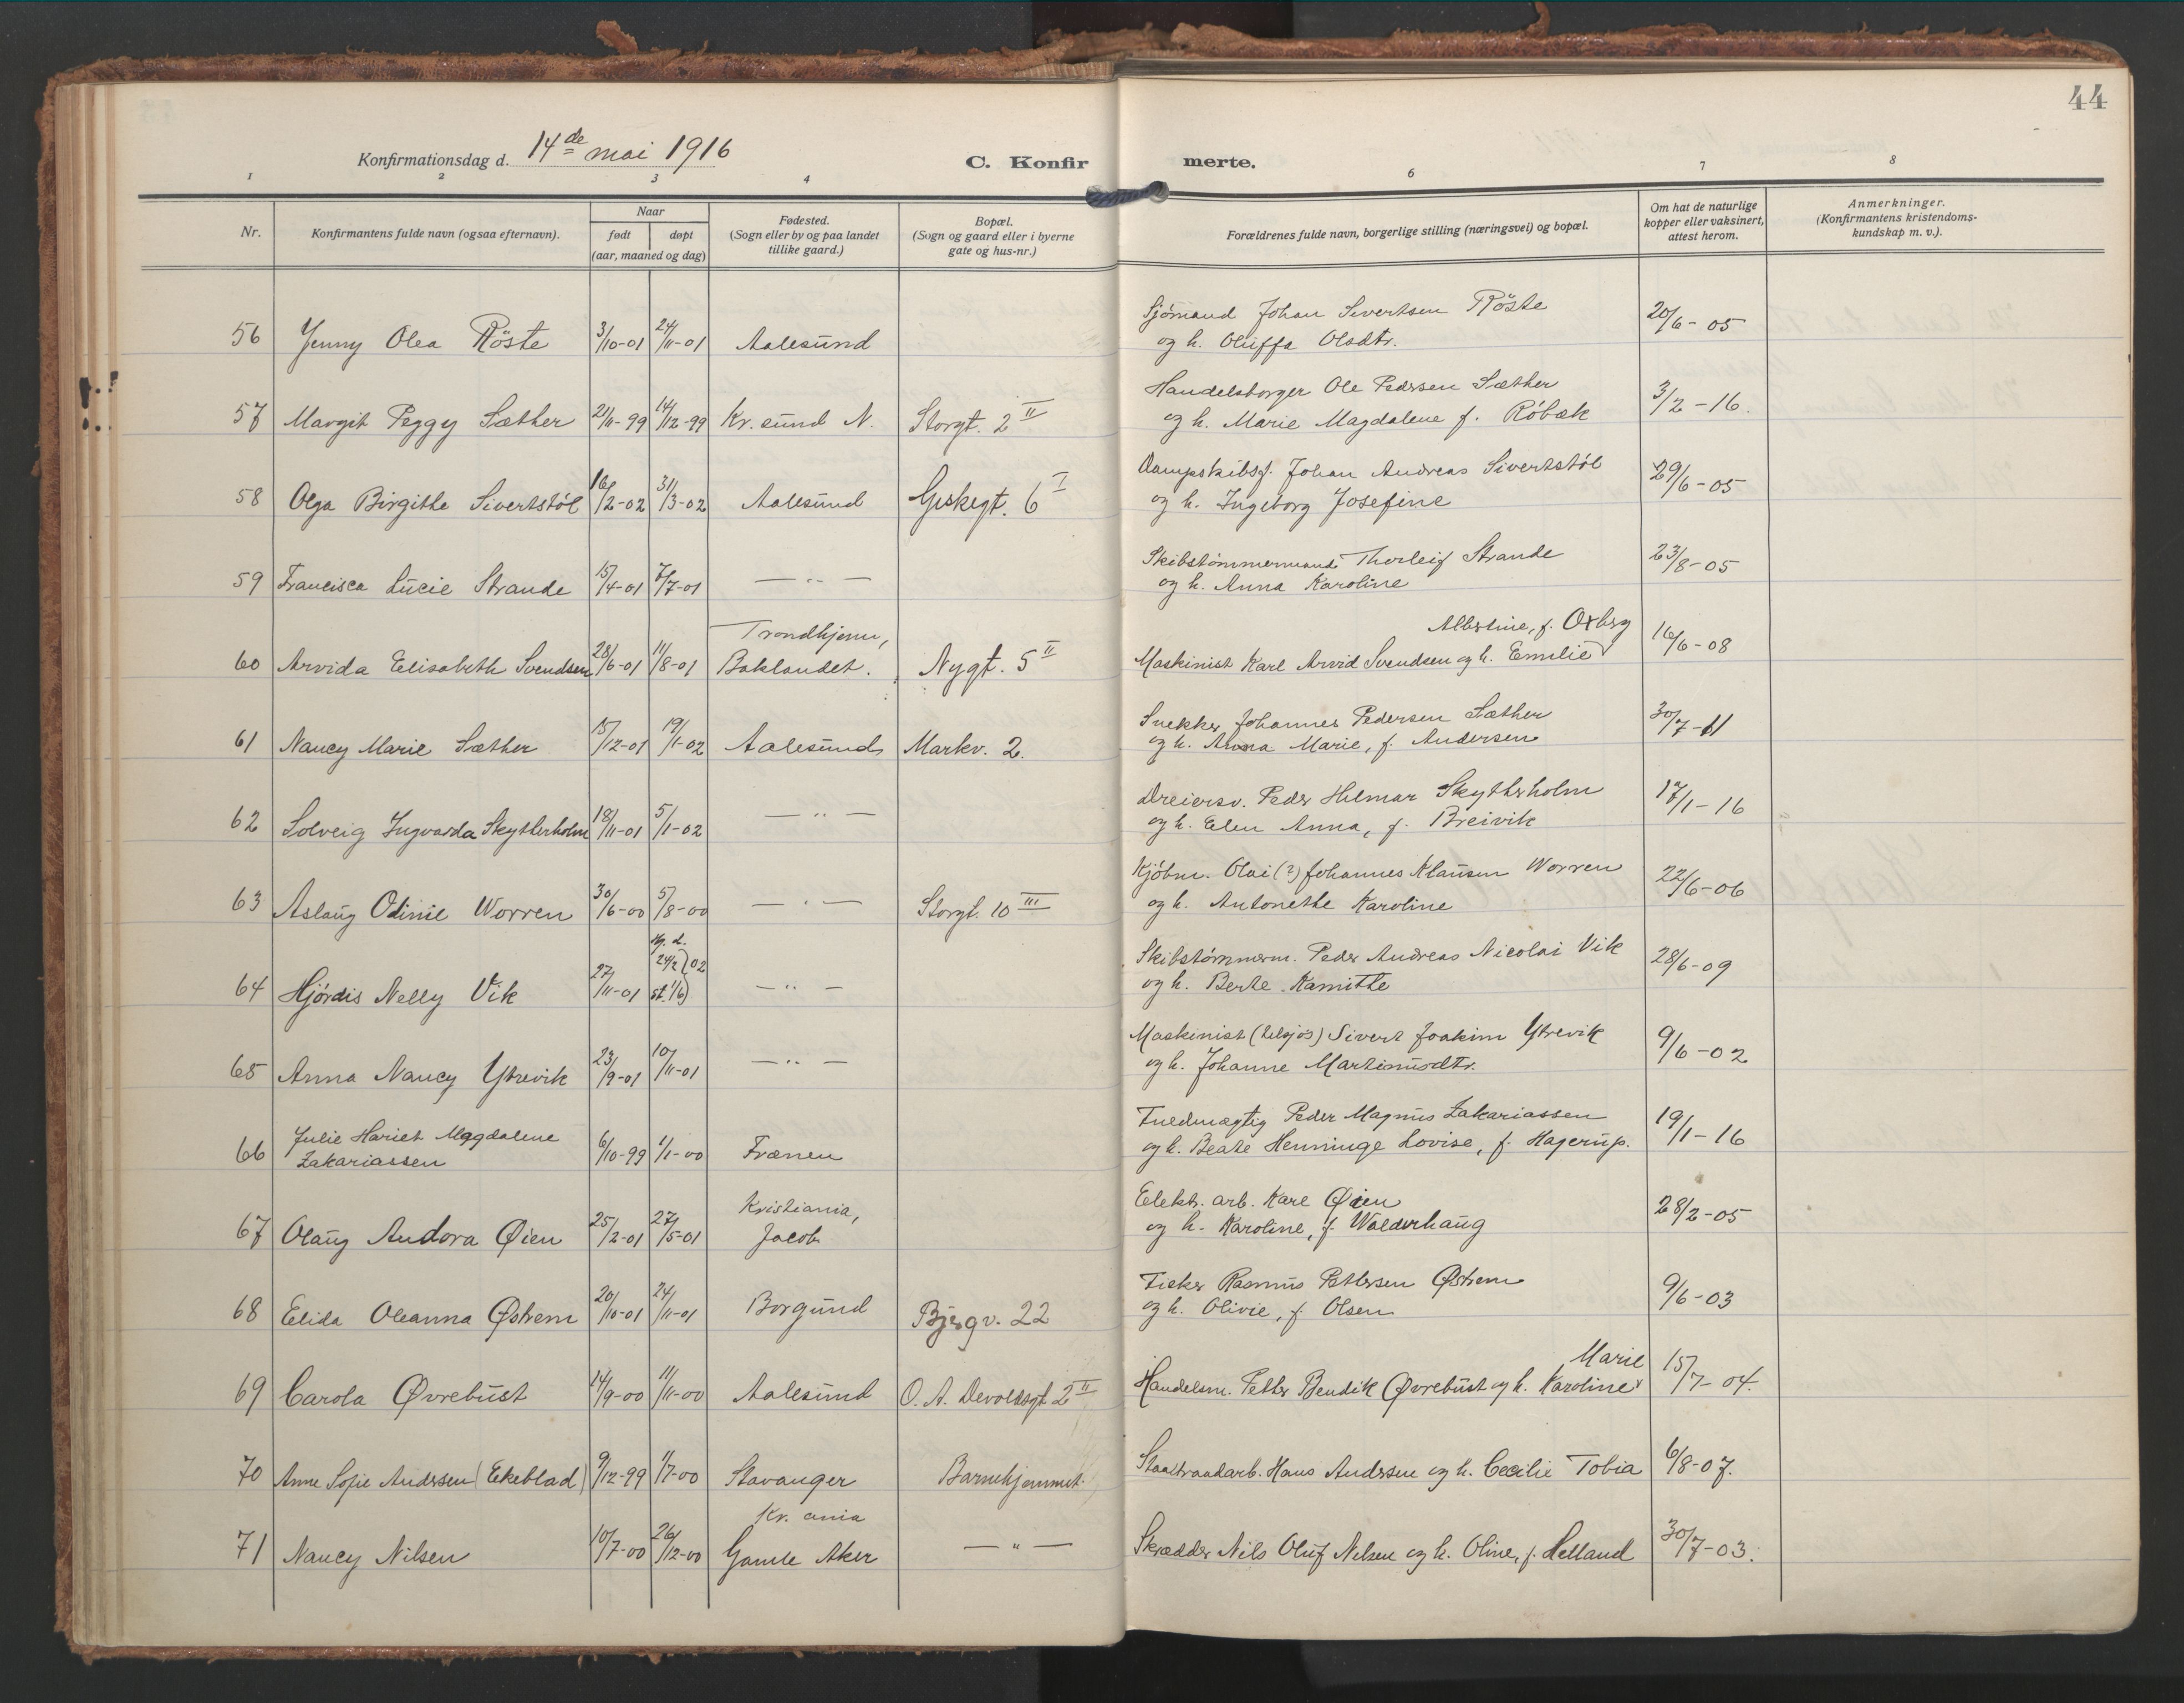 44
Konfirmationsdag d. 14de mai 1916
C. Konfirmerte.
1 2 3 4 6 7 8
Nr.
Konfirmantens fulde navn (ogsaa efternavn).
Naar
født døpt
(aar, maaned og dag)
Fødested.
(Sogn eller by og paa landet
tillike gaard.)
Bopæl.
(Sogn og gaard eller i byerne
gate og hus-nr.)
Forældrenes fulde navn, borgerlige stilling (næringsvei) og bopæl.
Om hat de naturlige
kopper eller vaksinert,
attest herom.
Anmerkninger.
(Konfirmantens kristendoms-
kundskap m. v.).
Sjømand Johan Sivertsen Röste
56 Jenny Olea Röste 3/10-01 24/11-01 Aalesund og h. Oluffa Olsdtr. 20/6-05
Handelsborger Ole Pedersen Sæther
57 Margit Peggy Sæther 21/11-99 14/12-99 Kr.sund N. Storgt. 2 II og h. Marie Magdalene f. Róbæk 3/2-16.
Dampskibsf. Johan Andreas Sivertstøl
58 Olga Birgithe Sivertstøl 16/2-02 31/3-02 Aalesund Geskegt. 6 I og h. Ingeborg Josefine 29/6-05
Skibstømmermand Thorleif Strande
59 Francisca Lucie Strande 15/4-01 7/7-01 — " — og h. Anna Karoline 23/8-05
Trondhjem, Albertine, f. Oxberg
60 Arvida Elisabeth Svendsen 28/6-01 11/8-01 Baklandet. Nygt. 5 II Maskinist Karl Arvid Svendsen og h. Emilie 16/6-08
Snekker Johannes Pedersen Sæther
61 Nancy Marie Sæther 15/12-01 19/1-02 Aalesund Markv. 2. og h. Anna Marie, f. Andersen 30/7-11
Dreiersv. Peder Hilmar Skytterholm
62 Solveig Ingvarda Skytterholm 18/11-01 5/1-02 — " — og h. Elen Anna, f. Breivik 17/1-16
Kjøbm. Olai (?) Johannes Klausen Worren
63 Aslaug Odinie Worren 30/6-00 5/8-00 — " — Storgt. 10 III og h. Antonethe Karoline 22/6-06
Skibstømmerm. Peder Andreas Nicolai Vik
64 Hjørdis Nelly Vik 27/11-01 Hj. d. 24/2 st. 1/6 } 02 — " — og h. Berte Kamitte 28/6-09
Maskinist (tilsjøs) Sivert Joakim Ytrevik
65 Anna Nancy Ytrevik 23/9-01 10/11-01 — " — og h. Johanne Martinusdtr. 9/6-02
Julie Hariet Magdalene Fuldmægtig Peder Magnus Zakariassen
66 Zakariassen 6/10-99 1/1-00 Frænen og h. Beate Henninge Lovise, f. Hagerup. 19/1-16
Kristiania, Elektr. arb. Karl Øien
67 Olaug Andora Øien 25/2-01 27/5-01 Jacob og h. Karoline, f. Walderhaug 28/2-05
Fisker Rasmus Pettersen Østrem
68 Elida Oleanna Østrem 20/10-01 24/11-01 Borgund Bjergv. 22 og h. Olivie, f. Olsen 9/6-03
Marie
69 Carola Øvrebust 14/9-00 11/11-00 Aalesund O. A. Devoldsgt 2 II Handelsm. Petter Bendik Øvrebust og h. Karoline 15/7-04.
70 Anne Sofie Andersen (Ekeblad) 9/12-99 1/7-00 Stavanger Barnehjemmet. Staaltraadarb. Hans Andersen og h. Cecilie Tobia 6/8-07.
Kr.ania
71 Nancy Nilsen 10/7-00 26/12-00 Gamle Aker — " — Skrædder Nils Oluf Nilsen og h. Oline, f. Helland 30/7-03.